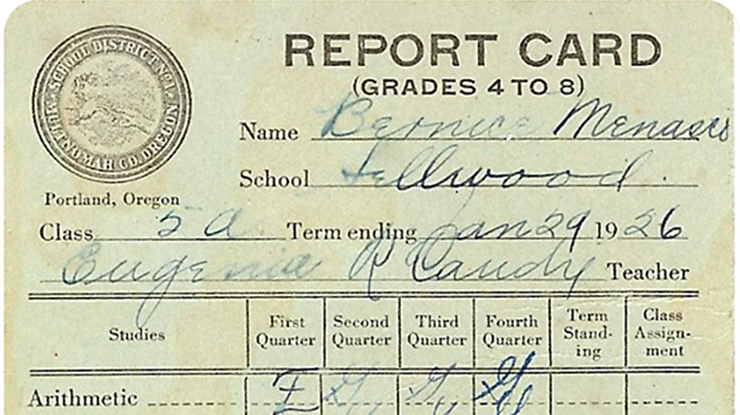 SCHOOL DISTRICT NO. 1, MULTNOMAH CO. OREGON
REPORT CARD
(GRADES 4 TO 8)
Name Bernice Menases
School Sellwood.
Portland, Oregon
Class 5 A Term ending Jan 29 1926
Eugenia R Candy Teacher
Studies First Quarter Second Quarter Third Quarter Fourth Quarter Term Stand-ing Class Assign-ment
Arithmetic E G G G